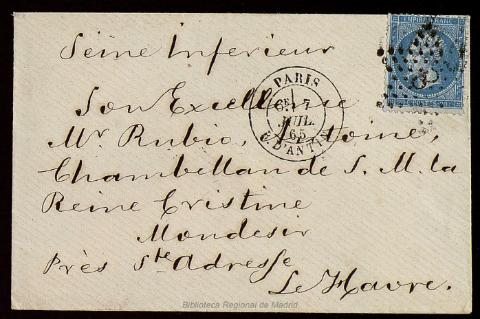 EMPIRE FRANC
Seine Inferieur
PARIS
6E 17
JUIL.
65
C. D'ANTIN
Son Excellence
Mr. Rubio, Antoine,
Chambellan de S. M. la
Reine Cristine
Mondesir
Près Ste Adresse
Le Havre.
Biblioteca Regional de Madrid